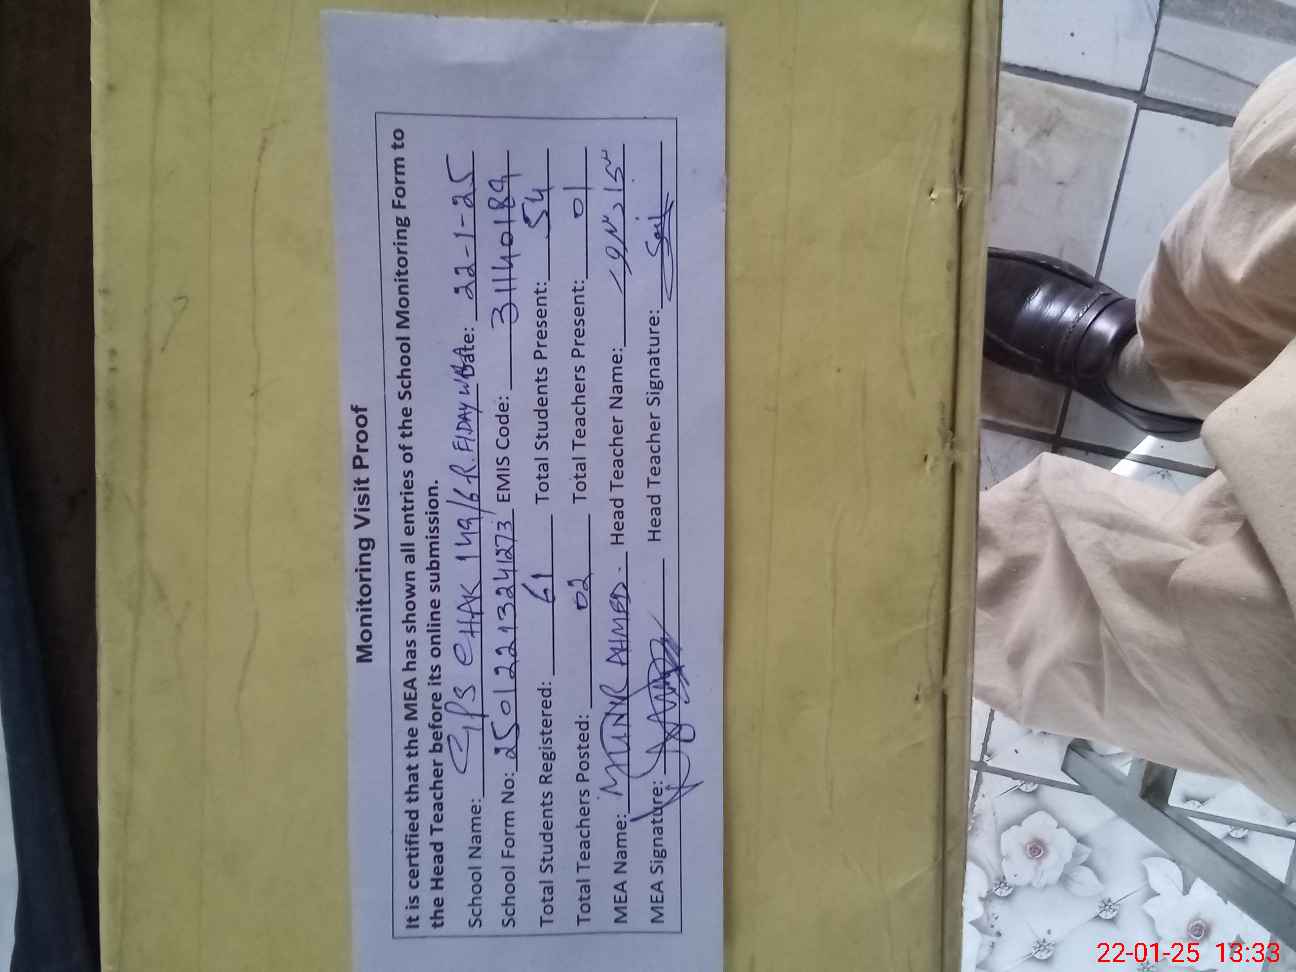 Monitoring Visit Proof
It is certified that the MEA has shown all entries of the School Monitoring Form to
the Head Teacher before its online submission.
School Name: GPS CHAK 149/6R. FIDAY WALA Date: 22-1-25
School Form No: 25012213241273 EMIS Code: 31140189
Total Students Registered: 61 Total Students Present: 54
Total Teachers Posted: 02 Total Teachers Present: 01
MEA Name: MUNIR AHMED. Head Teacher Name:
MEA Signature: Head Teacher Signature:
22-01-25 13:33